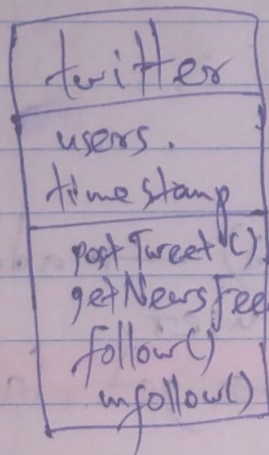 twitter
users.
timestamp
postTweet()
getNewsFee
follow()
unfollow()